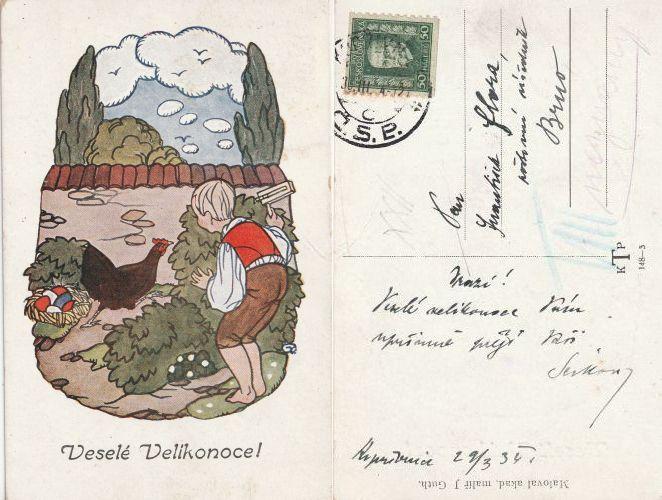 Veselé Velikonoce!
50 50
S.P.
Pan
František Flora,
poštovní úředník
Brno
KTP
148-3
Drazí!
Veselé velikonoce Vám
upřímně přejí Vaši
Kopřivnice 29/3 34.
Maloval akad. malíř J Guth.